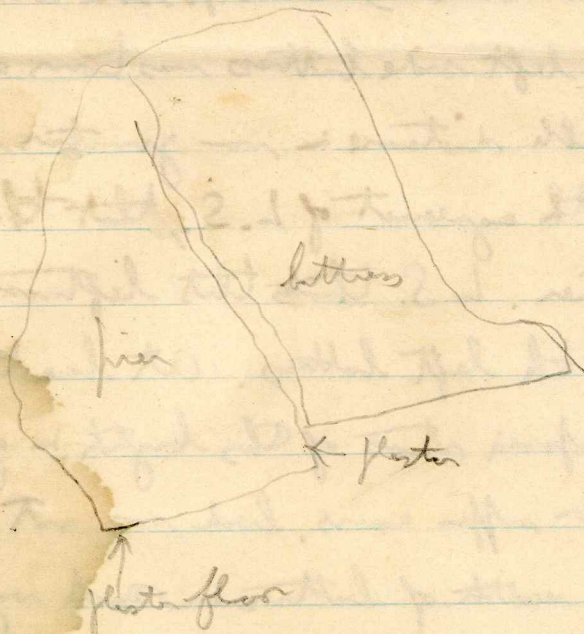 buttress
pier
plaster
plaster floor